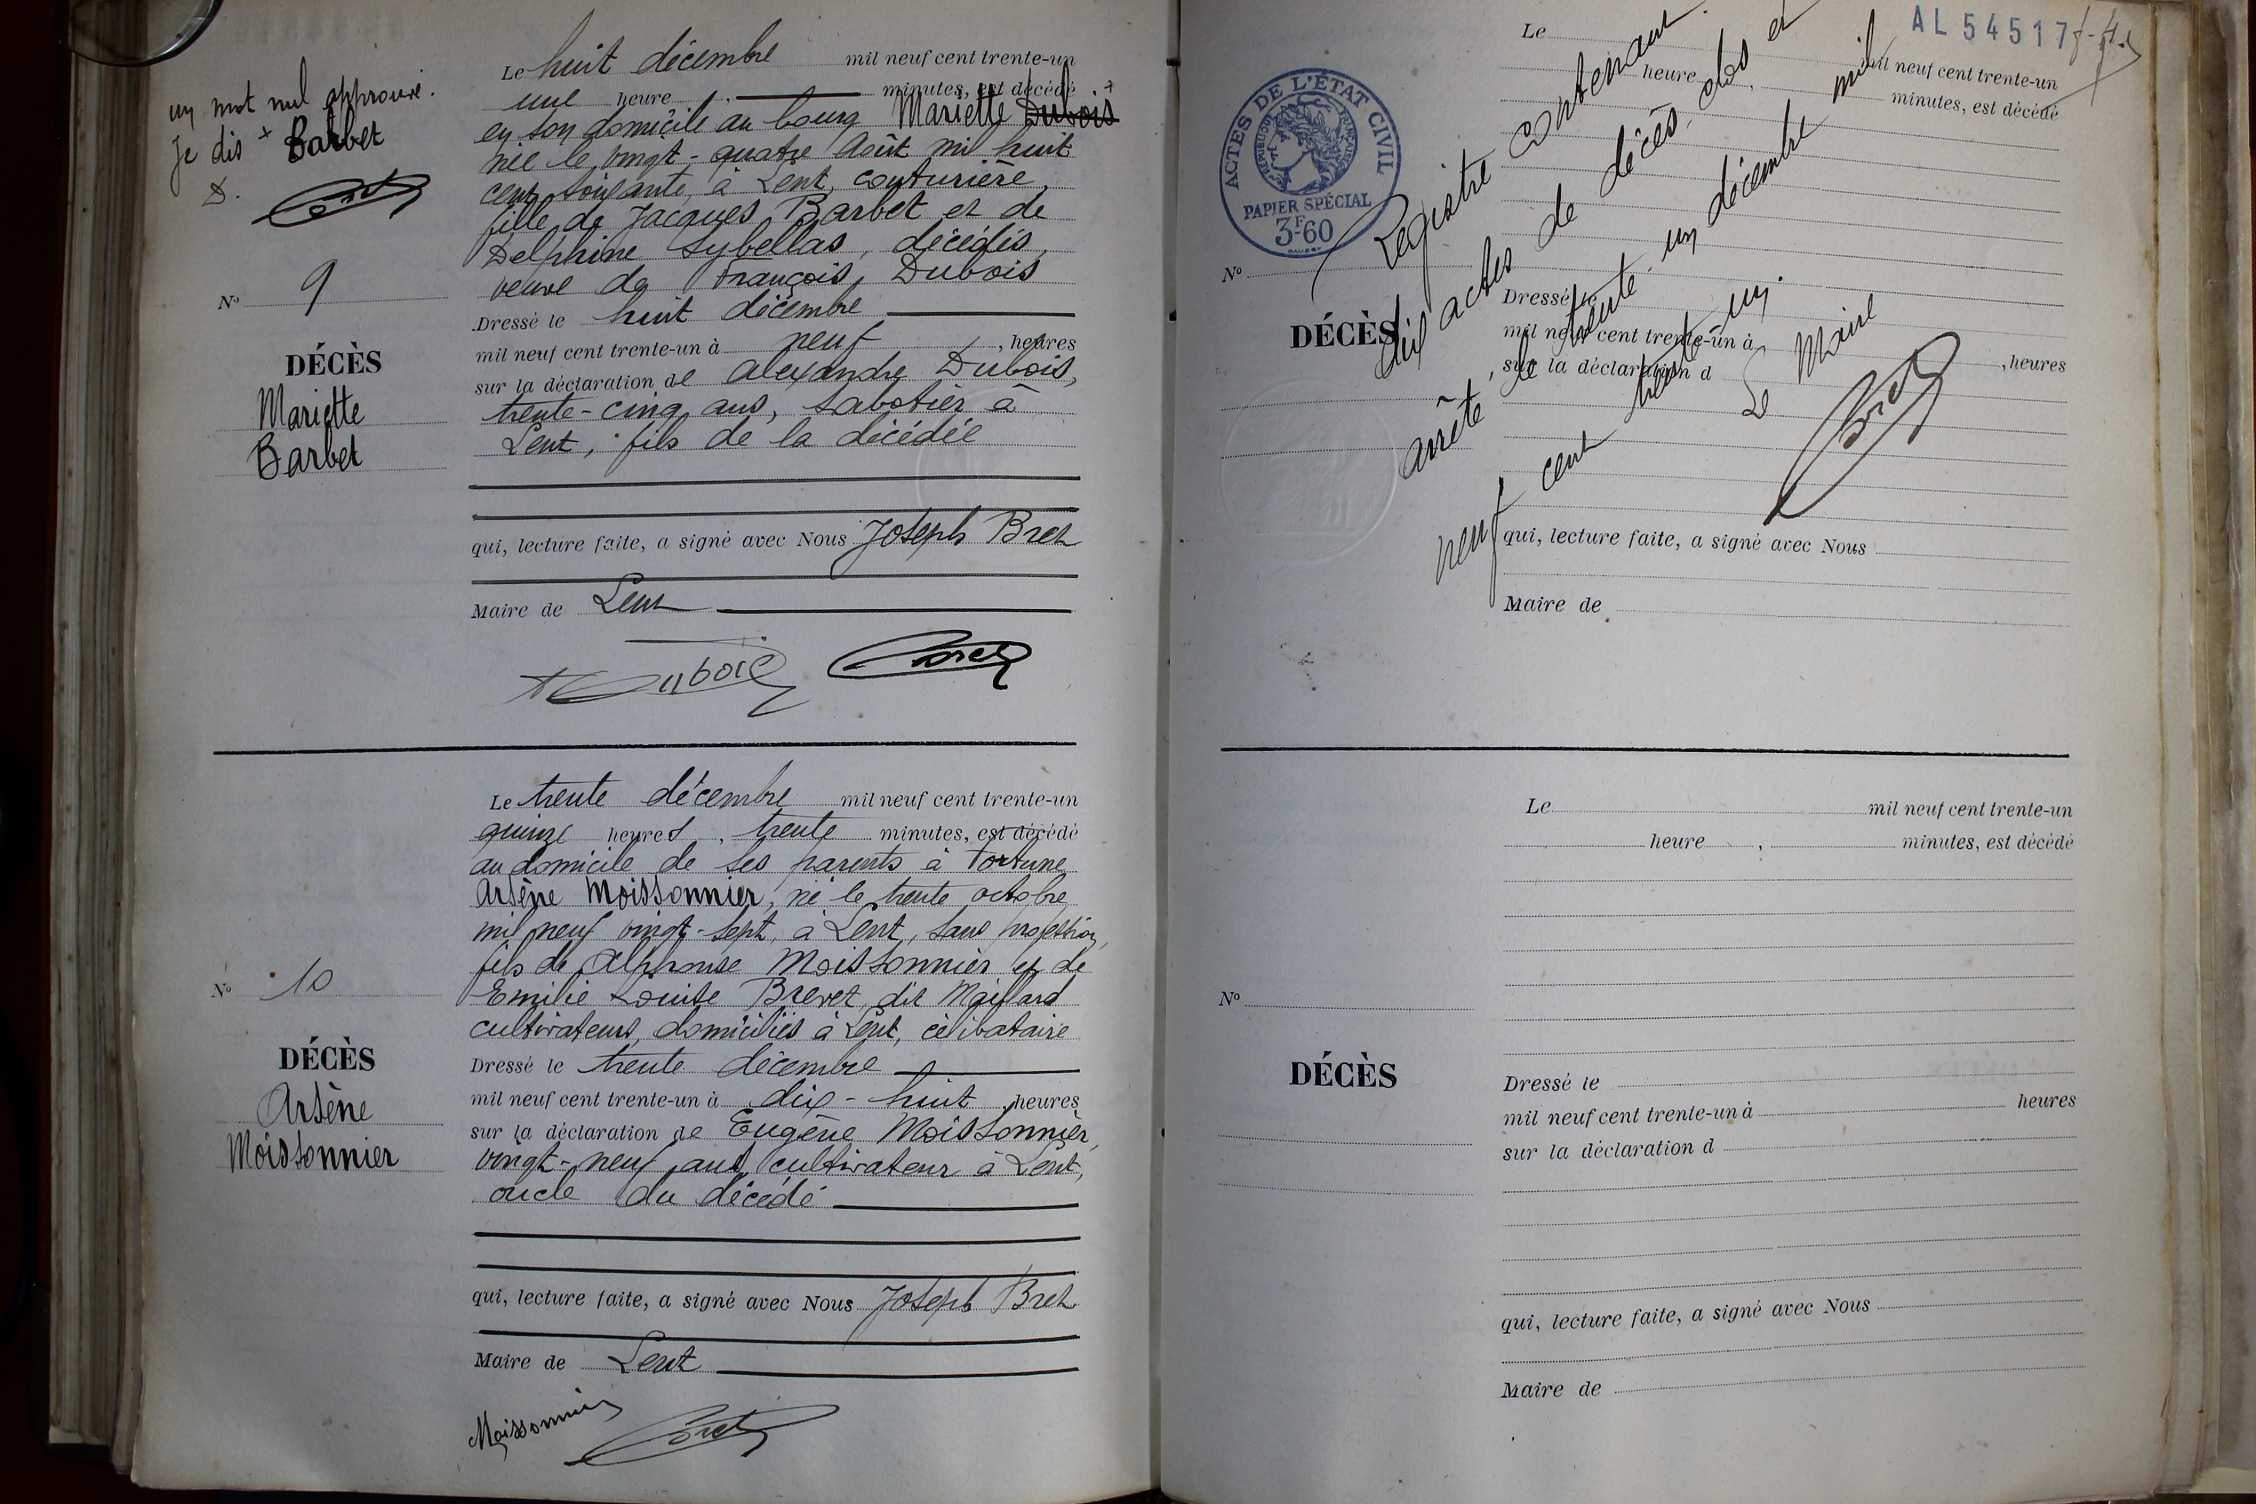 un mot nul approuvé.
Je dis + Barbet
D.
Bret
N° 9
DÉCÈS
Mariette
Barbet
Le huit décembre mil neuf cent trente-un
une heure , minutes, est décédé
en son domicile au bourg Mariette Dubois +
née le vingt-quatre Août mil huit
cent soixante, à Lent, couturière,
fille de Jacques Barbet et de
Delphine Sybellas, décédés,
veuve de François Dubois
Dressé le huit décembre
mil neuf cent trente-un à neuf , heures
sur la déclaration de Alexandre Dubois,
trente-cinq ans, sabotier à
Lent, fils de la décédée
qui, lecture faite, a signé avec Nous Joseph Bret
Maire de Lent
Dubois Bret
N° 10
DÉCÈS
Arsène
Moissonnier
Le trente décembre mil neuf cent trente-un
quinze heures , trente minutes, est décédé
au domicile de ses parents à Fortune
Arsène Moissonnier, né le trente octobre
mil neuf vingt-sept, à Lent, sans profession,
fils de Alphonse Moissonnier et de
Emilie Louise Brevet, dit Maillard
cultivateurs, domiciliés à Lent, célibataire
Dressé le trente décembre
mil neuf cent trente-un à dix-huit , heures
sur la déclaration de Eugène Moissonnier,
vingt-neuf ans, cultivateur à Lent,
oncle du décédé
qui, lecture faite, a signé avec Nous Joseph Bret
Maire de Lent
Moissonnier Bret
AL 54517
ACTES DE L'ÉTAT CIVIL
RÉPUBLIQUE FRANÇAISE
PAPIER SPÉCIAL
3F60
N°
DÉCÈS
Le mil neuf cent trente-un
heure , minutes, est décédé
Dressé le
mil neuf cent trente-un à , heures
sur la déclaration d
qui, lecture faite, a signé avec Nous
Maire de
Registre contenant
dix actes de décès, clos et
arrêté, le trente un décembre mil
neuf cent trente un.
Le Maire
Bret
N°
DÉCÈS
Le mil neuf cent trente-un
heure , minutes, est décédé
Dressé le
mil neuf cent trente-un à heures
sur la déclaration d
qui, lecture faite, a signé avec Nous
Maire de